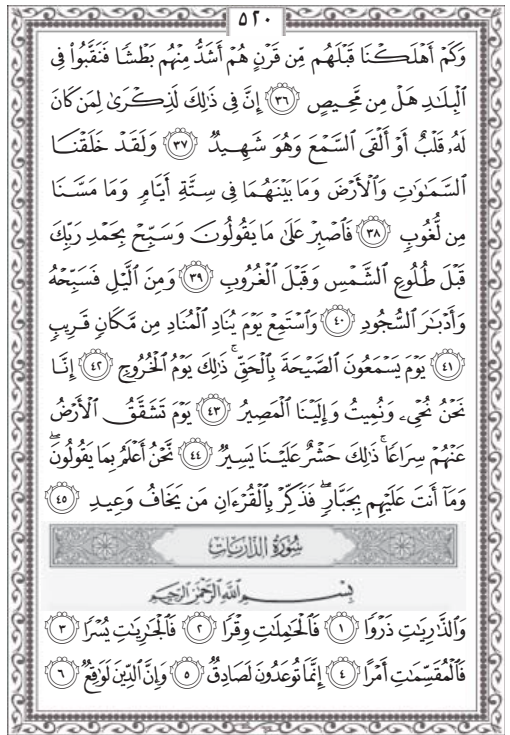 ٥٢٠
وَكَمْ أَهْلَكْنَا قَبْلَهُم مِّن قَرْنٍ هُمْ أَشَدُّ مِنْهُم بَطْشًا فَنَقَّبُواْ فِى
ٱلْبِلَٰدِ هَلْ مِن مَّحِيصٍ ٣٦ إِنَّ فِى ذَٰلِكَ لَذِكْرَىٰ لِمَن كَانَ
لَهُۥ قَلْبٌ أَوْ أَلْقَى ٱلسَّمْعَ وَهُوَ شَهِيدٌ ٣٧ وَلَقَدْ خَلَقْنَا
ٱلسَّمَٰوَٰتِ وَٱلْأَرْضَ وَمَا بَيْنَهُمَا فِى سِتَّةِ أَيَّامٍ وَمَا مَسَّنَا
مِن لُّغُوبٍ ٣٨ فَٱصْبِرْ عَلَىٰ مَا يَقُولُونَ وَسَبِّحْ بِحَمْدِ رَبِّكَ
قَبْلَ طُلُوعِ ٱلشَّمْسِ وَقَبْلَ ٱلْغُرُوبِ ٣٩ وَمِنَ ٱلَّيْلِ فَسَبِّحْهُ
وَأَدْبَٰرَ ٱلسُّجُودِ ٤٠ وَٱسْتَمِعْ يَوْمَ يُنَادِ ٱلْمُنَادِ مِن مَّكَانٍ قَرِيبٍ
٤١ يَوْمَ يَسْمَعُونَ ٱلصَّيْحَةَ بِٱلْحَقِّ ۚ ذَٰلِكَ يَوْمُ ٱلْخُرُوجِ ٤٢ إِنَّا
نَحْنُ نُحْىِۦ وَنُمِيتُ وَإِلَيْنَا ٱلْمَصِيرُ ٤٣ يَوْمَ تَشَقَّقُ ٱلْأَرْضُ
عَنْهُمْ سِرَاعًا ۚ ذَٰلِكَ حَشْرٌ عَلَيْنَا يَسِيرٌ ٤٤ نَّحْنُ أَعْلَمُ بِمَا يَقُولُونَ ۖ
وَمَآ أَنتَ عَلَيْهِم بِجَبَّارٍ ۖ فَذَكِّرْ بِٱلْقُرْءَانِ مَن يَخَافُ وَعِيدِ ٤٥
سُورَةُ الذَّارِيَاتِ
بِسْمِ اللَّهِ الرَّحْمَٰنِ الرَّحِيمِ
وَٱلذَّٰرِيَٰتِ ذَرْوًا ١ فَٱلْحَٰمِلَٰتِ وِقْرًا ٢ فَٱلْجَٰرِيَٰتِ يُسْرًا ٣
فَٱلْمُقَسِّمَٰتِ أَمْرًا ٤ إِنَّمَا تُوعَدُونَ لَصَادِقٌ ٥ وَإِنَّ ٱلدِّينَ لَوَٰقِعٌ ٦